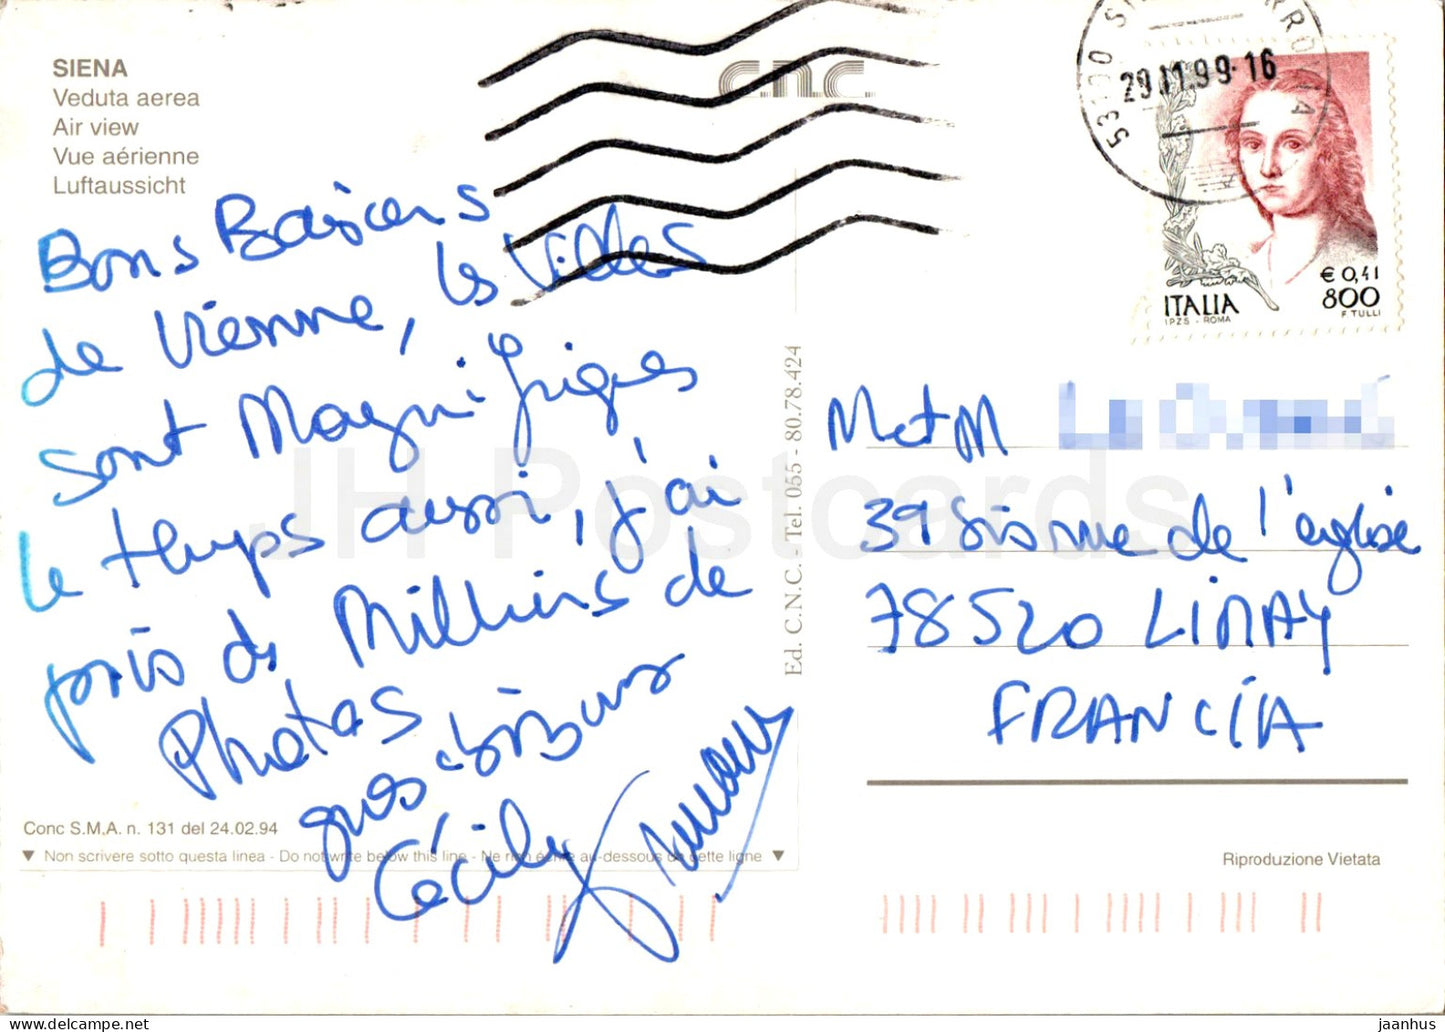 SIENA
Veduta aerea
Air view
Vue aérienne
Luftaussicht
c.n.c.
29.11.99-16
€ 0,41
800
ITALIA
I.P.Z.S. - ROMA
F. TULLI
Bons Baisers
de Vienne, les villes
sont Magnifiques
le temps aussi, j'ai
pris des Millions de
Photos
gros bisous
Cécily
Ed. C.N.C. - Tel. 055 - 80.78.424
M et M
39 de l'église
78520 LIMAY
FRANCIA
Conc S.M.A. n. 131 del 24.02.94
▼ Non scrivere sotto questa linea - Do not write below this line - Ne rien écrire au-dessous de cette ligne ▼
Riproduzione Vietata
JH Postcards
jaanhus.com